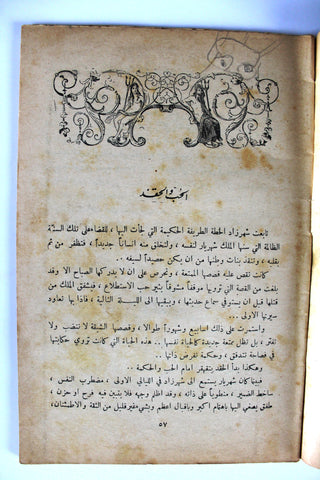 الحب والحقد
تابعت شهرزاد الخطة الطريفة الحكيمة التي لجأت اليها ، للقضاء على تلك السنّة
الظالمة التي سنها الملك شهريار لنفسه ، ولتخلق منه انساناً جديداً ، فتظفر من ثم
بقلبه ، وتنقذ بنات وطنها من ان يكن حصيداً لسيفه ..
كانت تقص عليه قصصها الممتعة ، وتحرص على ان لا يدركها الصباح الا وقد
بلغت من القصة التي ترويها موقفاً مشوقاً يثير حب الاستطلاع ، فيشفق الملك من
قتلها قبل ان يستوفي سماع حديثها ، ويبقيها الى الليلة التالية ، فاذا بها تعاود
سيرتها الاولى ...
واستمرت على ذلك اسابيع وشهوراً طوالا ، وقصصها الشيقة لا تنضب ولا
تفتر ، بل تظل ممتعة جديدة كالحياة نفسها .. هذه الحياة التي كانت تروي حكايتها
في فصاحة تتدفق ، وحكمة تفرض ذاتها ..
وهكذا بدأ الحقد يتقهقر امام الحب والحكمة ..
فبينما كان شهريار يستمع الى شهرزاد في الليالي الاولى ، مضطرب النفس ،
ساخط الضمير ، منطوياً على ذاته ، وقد اظلم وجهه فلا يتبين فيه فرح او حزن ،
طفق يصغي اليها باهتام اكبر وباقبال اعظم وبشيء غير قليل من الثقة والاطمئنان،
٥٧